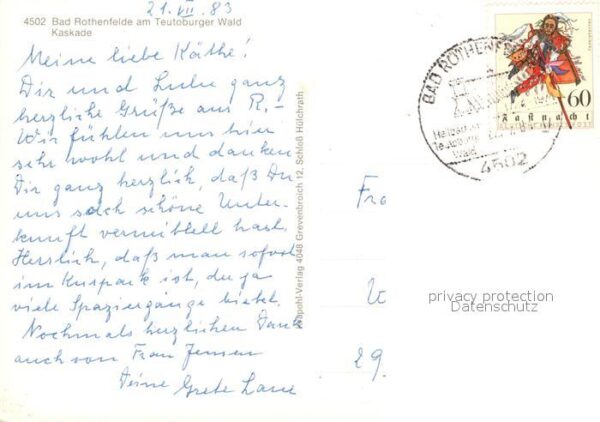 21.VII.83
4502 Bad Rothenfelde am Teutoburger Wald
Kaskade
Meine liebe Käthe!
Dir und Lube ganz
herzliche Grüße aus R.-
Wir fühlen uns hier
sehr wohl und danken
Dir ganz herzlich, daß Du
uns solch schöne Unter-
kunft vermittelt hast.
Herrlich, daß man sofort
im Kurpark ist, der ja
viele Spaziergänge bietet.
Nochmals herzlichen Dank
auch von Frau Jensen
Deine Grete
Krapohl-Verlag 4048 Grevenbroich 12, Schloß Hülchrath
BAD ROTHENFE
Wald
4502
60
Fastnacht
Fra
29.
privacy protection
Datenschutz